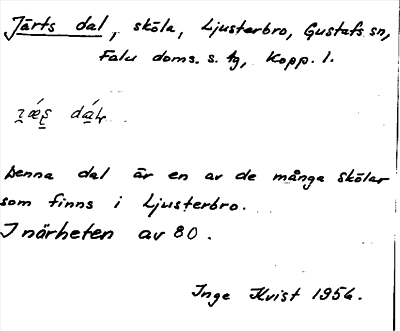 Järts dal, sköla, Ljusterbro, Gustafs sn,
Falu doms. s. tg, Kopp. l.
Denna dal är en av de många skölar
som finns i Ljusterbro.
I närheten av 80.
Inge Kvist 1956.